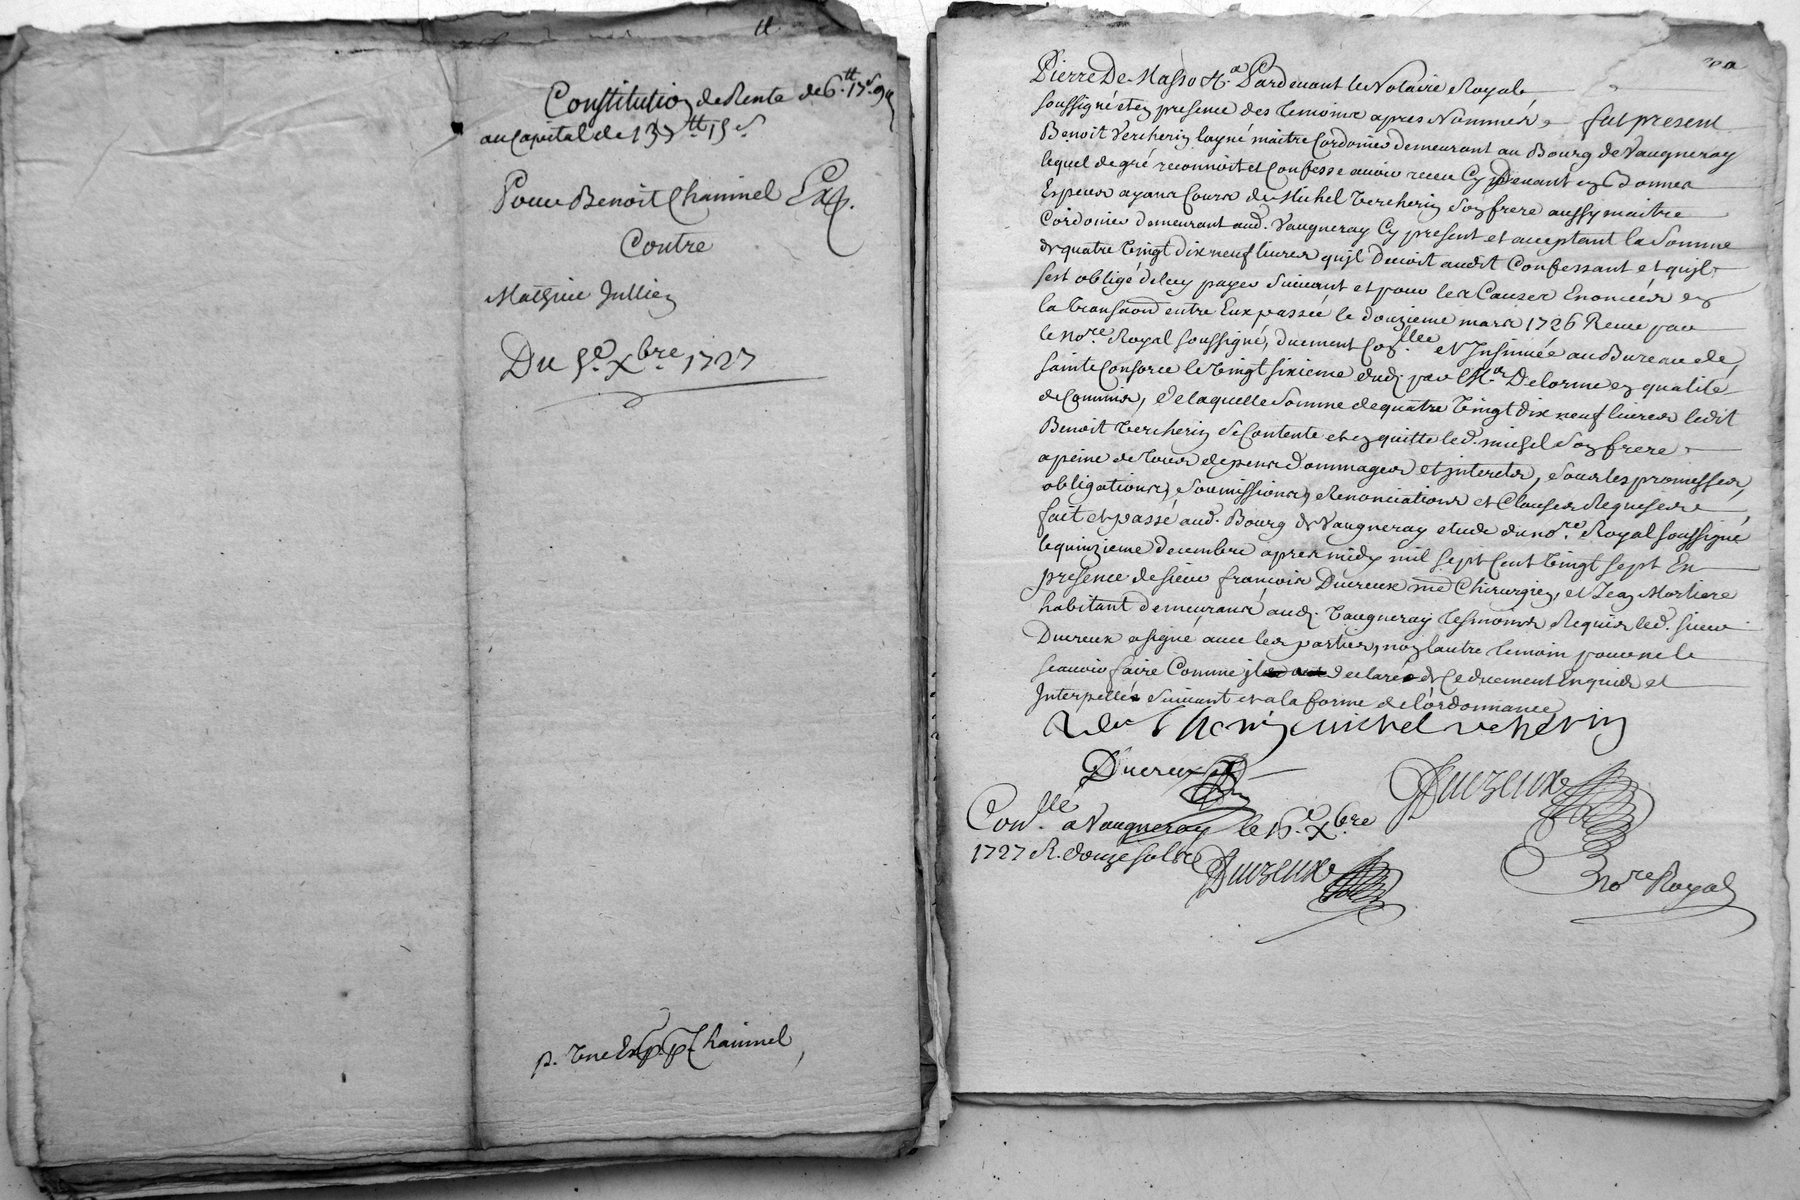 Constitution de Rente de 6.tt 17s. 9d
au Capital de 137tt 15s
Pour Benoit Chaninel Exp.
Contre
Mathieu Jullien
Du 5.e Xbre 1727
p. une Exp. p. Chaninel
Pierre De Masso &.a Pardevant le Notaire Royal
soussigné et en presence des temoins apres Nommés, fut present
Benoit Vercherin layné maitre Cordonier demeurant au Bourg de Vaugneray
lequel de gré reconnoit et Confesse avoir receu Cy Devant en Bonnes
Especes ayant Cours de Michel Vercherin son frere aussy maitre
Cordonier demeurant aud. Vaugneray Cy present et acceptant la Somme
de quatre Vingt dix neuf livres qu'jl Devoit audit Confessant et qu'jl
s'est obligé de luy payer suivant et pour les Causes Enoncées en
la transaon. entre Eux passée le douzieme mars 1726 Reçue par
le no.re Royal soussigné, duement Con.llée et Insinuée au Bureau de
sainte Consorce le vingt sixieme dud. par M.e Delorme en qualité
de Commis, de laquelle somme de quatre Vingt dix neuf livres ledit
Benoit Vercherin se Contente et en quitte led. michel son frere
a peine de tous depens dommages et jnterets, sous les promesses,
obligations, soumissions, Renonciations et Clauses Requises
fait et passé aud. Bourg de Vaugneray etude du no.re Royal soussigné
le quinzieme decembre apres midy mil sept Cent Vingt sept En
presence de sieur françois Ducreux me Chirurgien, et Jean Mortiere
habitant demeurants aud. Vaugneray tesmoins Requis led. sieur
Ducreux a signé avec les parties, non l'autre temoin pour ne le
scavoir faire Comme jl a declaré de Ce duement Enquis et
Interpellé suivant et a la forme de l'ordonnance
michel vercherin
Ducreux
Ducreux
Con.llé a Vaugneray le 16.e Xbre
1727 R. douze sols
Ducreux
no.re Royal